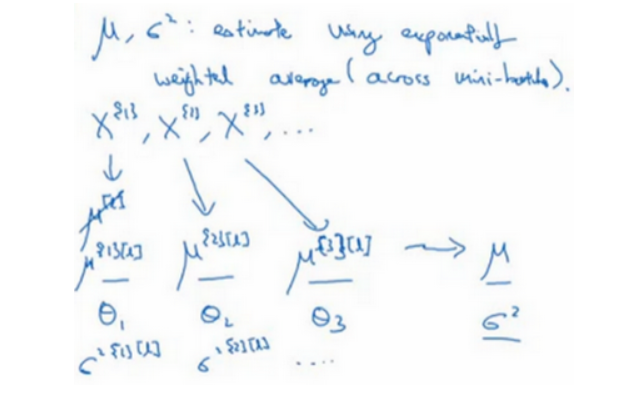 μ, σ²: estimate using exponentially
weighted average (across mini-batches).
X^{1}, X^{2}, X^{3}, ...
μ^{1}[l] μ^{2}[l] μ^{3}[l] → μ
θ₁ θ₂ θ₃ σ²
σ²^{1}[l] σ²^{2}[l] ....